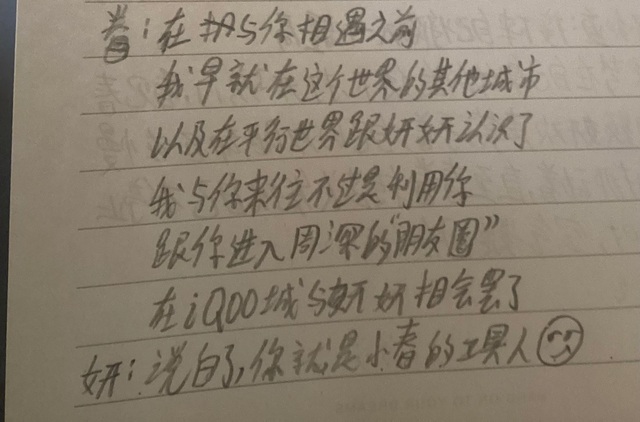 春:在我与你相遇之前
我早就在这个世界的其他城市
以及在平行世界跟妍妍认识了
我与你来往不过是利用你
跟你进入周深的“朋友圈”
在iQOO城与妍妍相会罢了
妍:说白了,你就是小春的工具人